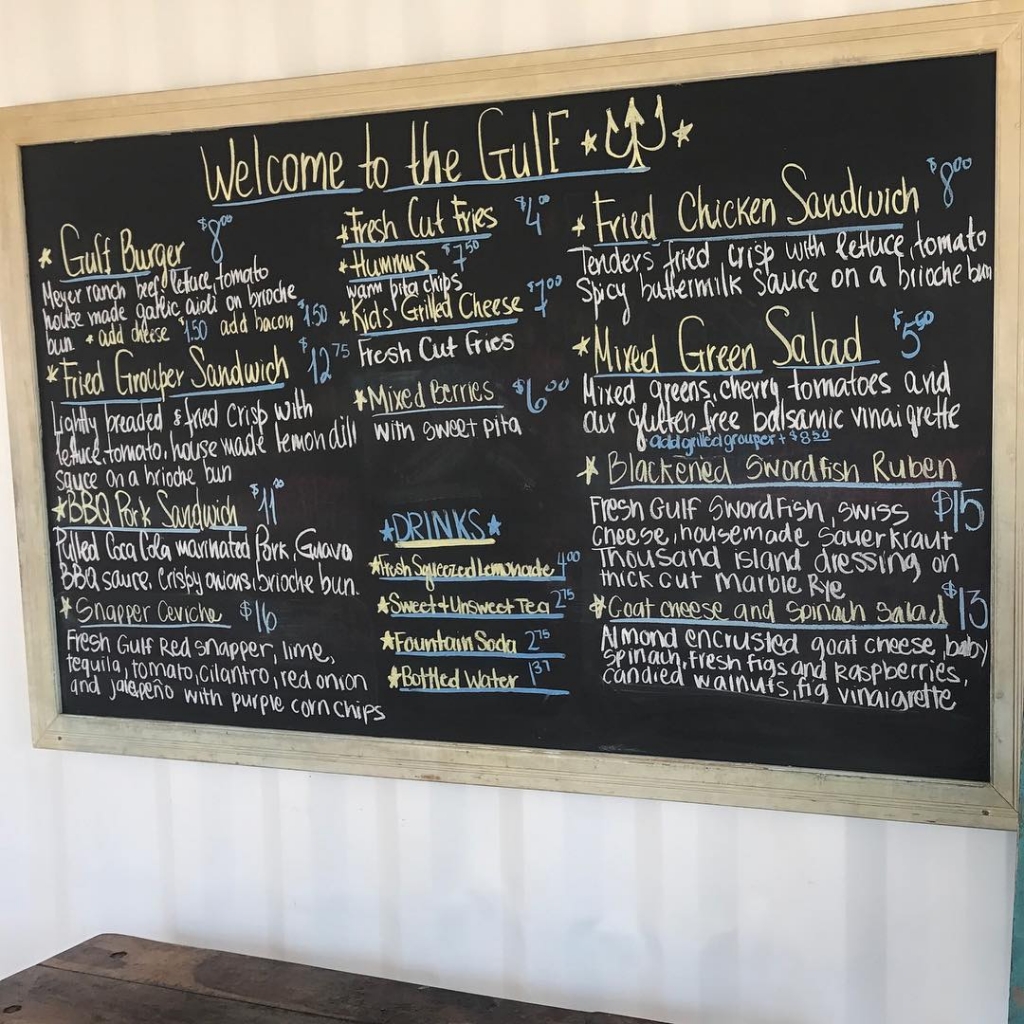 Welcome to the Gulf
* Gulf Burger $8.00
Meyer ranch beef, lettuce, tomato
house made garlic aioli on brioche
bun * add cheese $1.50 add bacon $1.50
* Fried Grouper Sandwich $12.75
Lightly breaded & fried crisp with
lettuce, tomato, house made lemon dill
sauce on a brioche bun
* BBQ Pork Sandwich $11.00
Pulled Coca Cola marinated Pork, Guava
BBQ sauce, Crispy onions, brioche bun.
* Snapper Ceviche $16
Fresh Gulf Red snapper, lime,
tequila, tomato, cilantro, red onion
and jalapeño with purple corn chips
* Fresh Cut Fries $4.00
* Hummus $7.50
warm pita chips
* Kids' Grilled Cheese $7.00
+
Fresh Cut Fries
* Mixed Berries $6.00
with sweet pita
* DRINKS *
* Fresh Squeezed Lemonade 4.00
* Sweet + Unsweet Tea 2.75
* Fountain Soda 2.75
* Bottled Water 1.37
* Fried Chicken Sandwich $8.00
Tenders fried crisp with lettuce, tomato
spicy buttermilk sauce on a brioche bun
* Mixed Green Salad $5.50
Mixed greens, cherry tomatoes and
our gluten free balsamic vinaigrette
add grilled grouper + $8.50
* Blackened Swordfish Ruben
Fresh Gulf Swordfish, swiss $15
cheese, housemade sauerkraut
Thousand island dressing on
thick cut Marble Rye
* Goat cheese and spinach salad $13
Almond encrusted goat cheese, baby
spinach, fresh figs and raspberries,
candied walnuts, fig vinaigrette